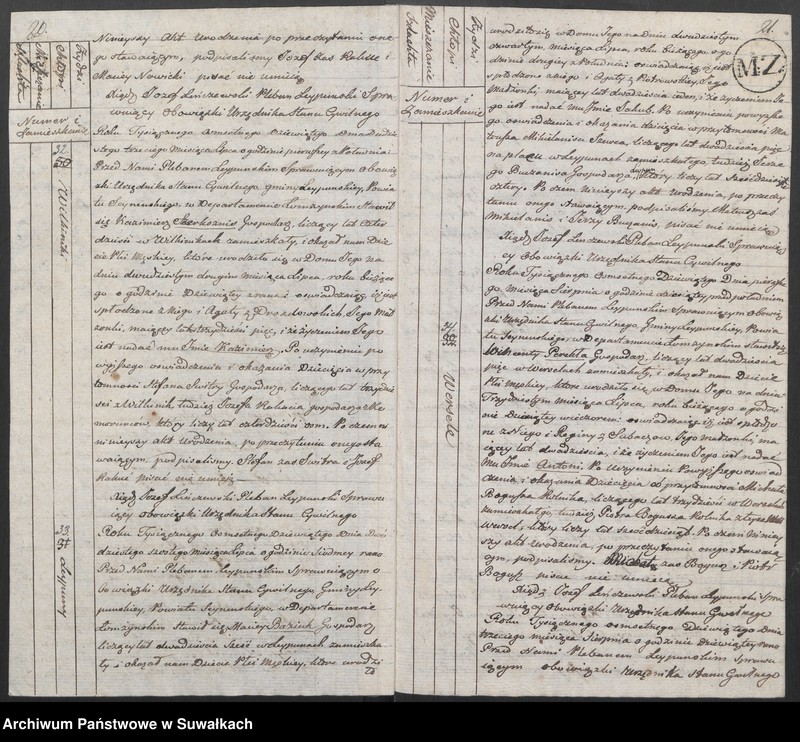 20.
Żydzi
Chłopi
Mieszczanie
Szlachta
Numer i
Zamieszkanie
Ninieyszy Akt Urodzenia po przeczytaniu one-
go stawaiącym, podpisaliśmy Jozef zas Kalisz i
Maciey Nowicki pisać nie umieią
Xiądz Jozef Liniszewski Pleban Leypunski Spra-
wuiący Obowiązki Urzędnika Stanu Cywilnego
32.
Wilkinki
Roku Tysiącznego Osmsetnego Dziewiątego Dnia Dwudzie-
stego trzeciego Miesiąca Lipca o godzinie pierwszey z południa
Przed Nami Plebanem Leypunskim Sprawuiącym Obowią-
zki Urzędnika Stanu Cywilnego, gminy Leypunskiey, Powia-
tu Seynenskiego, w Departamencie Łomżynskim Stawił
się Kazimierz Gospodarz, liczący lat czter-
dzieści w Wilkinkach zamieszkały, i okazał nam Dzie-
cie Płci Męskiey, które urodziło się w Domu Jego na
dniu dwudziestym drugim miesiąca Lipca, roku bieżące-
go o godzinie Dziewiątey zrana oświadczaiąc iż jest
spłodzone z Niego i Agaty z Jego Mał-
żonki, maiącey lat trzydzieści pięć, i że życzeniem Jego
iest nadać mu Imie Kazimierz. Po uczynieniu po-
wyższego oświadczenia i okazania Dziecięcia w przy-
tomności Stefana Switry Gospodarza, liczącego lat trzydzie-
ści z Wilkinik, tudzież Jozefa gospodarza z Ke-
morunców, który liczy lat czterdzieści osm. Po czem
ninieyszy akt Urodzenia, po przeczytaniu onego sta-
waiącym, podpisaliśmy. Stefan zas Switra i Jozef
pisać nie umieią
Xiądz Jozef Liniszewski Pleban Leypunski Sprawu-
iący Obowiązki Urzędnika Stanu Cywilnego
33.
Leypuny
Roku Tysiącznego Osmsetnego Dziewiątego Dnia Dwu-
dziestego szostego Miesiąca Lipca o godzinie Siodmey rano
Przed Nami Plebanem Leypunskim Sprawuiącym O-
bowiązki Urzędnika Stanu Cywilnego Gminy Ley-
punskiey, Powiatu Seynenskiego, w Departamencie
Łomżynskim Stawił się Maciey Gospodarz
liczący lat dwadzieścia Sześć w Leypunach zamieszka-
ły i okazał nam Dziecie Płci Męskiey, które urodzi
21.
M:Z.
Żydzi
Chłopi
Mieszczanie
Szlachta
Numer i
Zamieszkanie
urodziło się w Domu Jego na Dniu dwudziestym
czwartym, miesiąca Lipca, roku bieżącego o go-
dzinie drugiey z Południa oświadczaiąc iż jest
spłodzone z niego i Agaty z Piotrowskiey, Jego
Małżonki maiącey lat dwadzieścia ieden, i że życzeniem Je-
go iest nadać mu Imie Jakub. Po uczynieniu powyższe-
go oświadczenia i okazania dziecięcia w przytomności Ma-
teusza Mikielanisa Szewca, liczącego lat dwadzieścia pięć
na placu w Leypunach zamieszkałego, tudzież Jerze-
go Gospodarza, który liczy lat Sześćdziesiąt
cztery. Po czem Ninieyszy akt Urodzenia, po przeczy-
taniu onego Stawaiącym, podpisaliśmy Mateusz zas
Mikielanis i Jerzy pisać nie umieią
Xiądz Jozef Liniszewski Pleban Leypunski Sprawuią-
cy Obowiązki Urzędnika Stanu Cywilnego
34.
Wersele
Roku Tysiącznego Osmsetnego Dziewiątego Dnia pierwsze-
go miesiąca Sierpnia o godzinie dziesiątey przed południem
Przed Nami Plebanem Leypunskim Sprawuiącym Obowią-
zki Urzędnika Stanu Cywilnego, Gminy Leypunskiey, Powia-
tu Seynenskiego, w Departamencie Łomżynskim stawił się
Wincenty Perekla Gospodarz, liczący lat dwadzieścia
pięć w Werselach zamieszkały, i okazał nam Dziecie
Płci Męskiey, które urodziło się w Domu Jego na dniu
Trzydziestym miesiąca Lipca, roku bieżącego o godzi-
nie Dziewiątey wieczorem oświadczaiąc iż iest spłodzo-
ne z Niego i Reginy z Jego małżonki, ma-
iącey lat dwadzieścia, i że życzeniem Jego iest nadać
mu Imie Antoni. Po Uczynieniu Powyższego oświad-
czenia i okazania Dziecięcia w przytomności Michała
Bogusza Rolnika, liczącego lat trzydzieści w Werselach
zamieszkałego, tudzież Piotra Bogusza Rolnika z tychże
Wersel, który liczy lat sześćdziesiąt. Po czem Niniey-
szy akt Urodzenia, po przeczytaniu onego stawaią-
cym, podpisaliśmy. Michał zas Bogusz i Piotr
Bogusz pisać nie umieią
Xiądz Jozef Liniszewski Pleban Leypunski Spra-
wuiący Obowiązki Urzędnika Stanu Cywilnego
Roku Tysiącznego osmsetnego Dziewiątego Dnia
trzeciego miesiąca Sierpnia o godzinie dziewiątey rano
Przed Nami Plebanem Leypunskim Sprawu-
iącym obowiązki Urzędnika Stanu Cywilnego
Archiwum Państwowe w Suwałkach